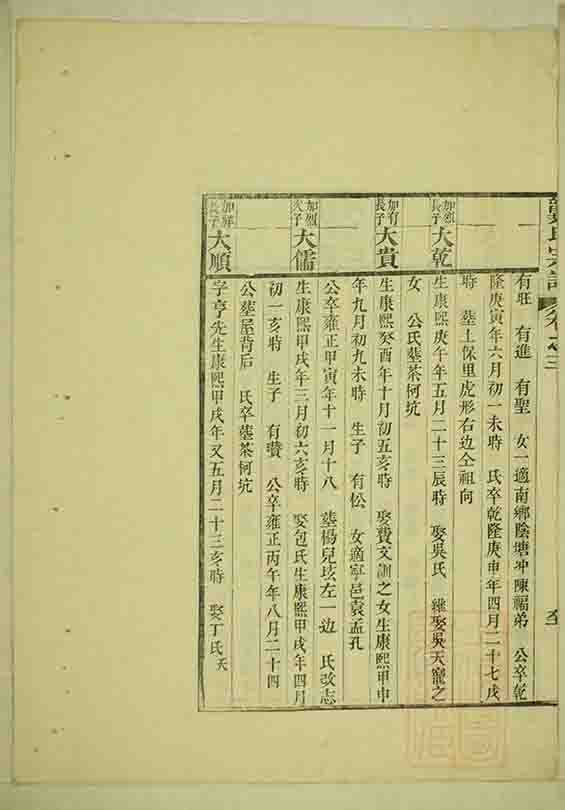 氏宗譜 卷之三
有旺 有進 有聖 女一適南鄉陰塘冲陳福弟 公卒乾
隆庚寅年六月初一未時 氏卒乾隆庚申年四月二十七戌
時 塟上保里虎形右边仝祖向
加烈長子 大乾 生康熙庚午年五月二十三辰時 娶吳氏 繼娶吳天寵之
女 公氏塟茶柯坑
加有長子 大貴 生康熙癸酉年十月初五亥時 娶費文訓之女生康熙甲申
年九月初九未時 生子 有松 女適寧邑袁孟孔
公卒雍正甲寅年十一月十八 塟楊兒坑左一边 氏改志
加烈次子 大儒 生康熙甲戌年三月初六亥時 娶包氏生康熙甲戌年四月
初一亥時 生子 有贊 公卒雍正丙午年八月二十四
公塟屋背后 氏卒塟茶柯坑
加鮮長子 大順 字亨先生康熙甲戌年又五月二十三亥時 娶丁氏天